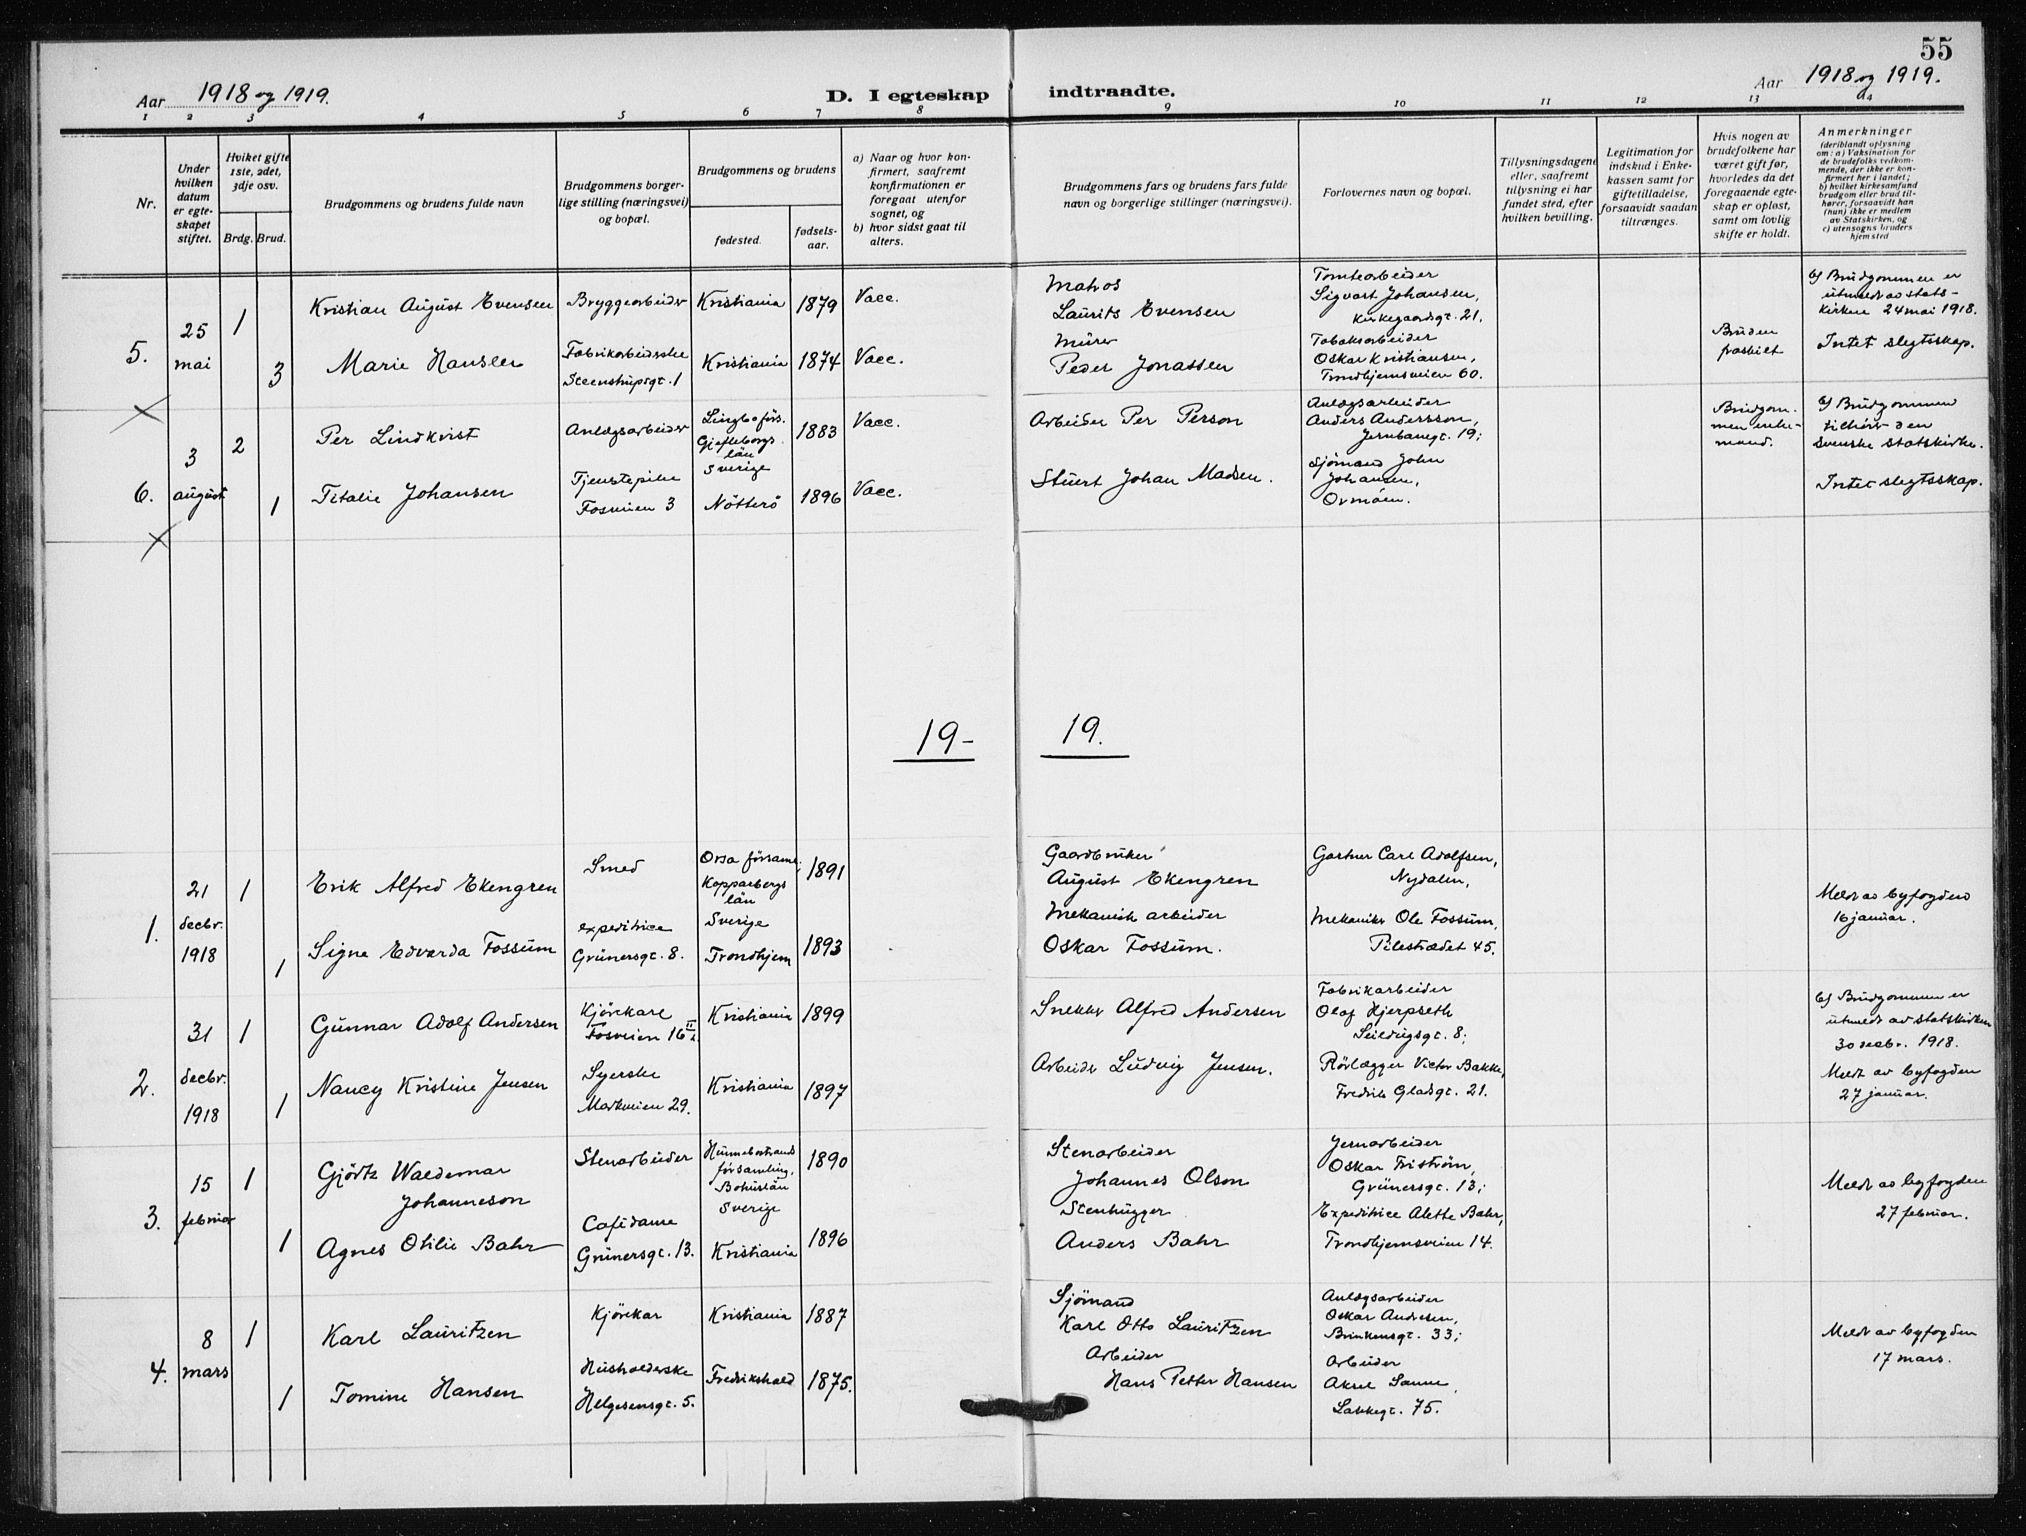 55
Aar 1918 og 1919.
D. I egteskap indtraadte.
Aar 1918 og 1919.
1 2 3 4 5 6 7 8 9 10 11 12 13 14
Nr.
Under hvilken datum er egteskapet stiftet.
Hviket gifte 1ste, 2det, 3dje osv.
Brdg. Brud.
Brudgommens og brudens fulde navn
Brudgommens borgerlige stilling (næringsvei) og bopæl.
Brudgommens og brudens
fødested.
fødselsaar.
a) Naar og hvor konfirmert, saafremt konfirmationen er foregaat utenfor sognet, og
b) hvor sidst gaat til alters.
Brudgommens fars og brudens fars fulde navn og borgerlige stillinger (næringsvei).
Forlovernes navn og bopæl.
Tillysningsdagene eller, saafremt tillysning ei har fundet sted, efter hvilken bevilling.
Legitimation for indskud i Enkekassen samt for giftetilladelse, forsaavidt saadan tiltrænges.
Hvis nogen av brudefolkene har været gift før, hvorledes da det foregaaende egteskap er opløst, samt om lovlig skifte er holdt.
Anmerkninger (deriblandt oplysning om: a) Vaksination for de brudefolks vedkommende, der ikke er konfirmert her i landet; b) hvilket kirkesamfund brudgom eller brud tilhører, forsaavidt han (hun) ikke er medlem av Statskirken, og c) utensogns bruders hjemsted
5.
25 mai
1
Kristian August Evensen
Bryggearbeider
Kristiania
1879
Vacc.
Matros
Laurits Evensen
Tomtearbeider
Sigvart Johansen,
Kirkegaardsgt. 21.
b) Brudgommen er
utmeldt av stats-
kirken 24 mai 1918.
3
Marie Hansen
Fabrikarbeiderske
Steenstrupsgt. 1
Kristiania
1874
Vacc.
Murer
Peder Jonassen
Tobaksarbeider
Oskar Kristiansen,
Trondhjemsveien 60.
Bruden
fraskilt
Intet slegtsskap.
6.
3 august
2
Per Lindkvist
Anlægsarbeider
Lingbo förs.
Gjefleborgs
län
Sverige
1883
Vacc.
Arbeider Per Person
Anlægsarbeider
Anders Andersson,
Jernbanegt. 19;
Brudgom-
men enke-
mand.
b) Brudgommen
tilhører den
svenske statskirke.
1
Titalie Johansen
Tjenestepike
Fosveien 3
Nötterö
1896
Vacc.
Stuert Johan Madsen.
Sjömand John
Johansen,
Ormöen.
Intet slegtsskap.
19-
19.
1.
21 decbr. 1918
1
Erik Alfred Ekengren
Smed
Orsa församl.
Kopparbergs
län
Sverige
1891
Gaardbruker
August Ekengren
Gartner Carl Adolfsen,
Nydalen,
Meldt av byfogden
16 januar.
1
Signe Edvarda Fossum
expeditrice
Grünersgt. 8.
Trondhjem
1893
Mekanisk arbeider
Oskar Fossum.
Mekaniker Ole Fossum,
Pilestrædet 45.
2.
31 decbr. 1918
1
Gunnar Adolf Andersen
Kjörekarl
Fosveien 16 II
Kristiania
1899
Snekker Alfred Andersen
Fabrikarbeider
Olaf Hjerpseth
Seildugsgt. 8;
b) Brudgommen er
utmeldt av statskirken
30 decbr. 1918.
1
Nancy Kristine Jensen
Syerske
Markveien 29.
Kristiania
1897
Arbeider Ludvig Jensen.
Rörlægger Victor Bakke,
Fredrik Gladsgt. 21.
Meldt av byfogden
27 januar.
3.
15 februar
1
Gjörtz Waldemar
Johanneson
Stenarbeider
Hunnebostrands
församling,
Bohuslän
Sverige
1890
Stenarbeider
Johannes Olson
Jernarbeider
Oskar Friström,
Grünersgt. 13;
Meldt av byfogden
27 februar.
1
Agnes Otilie Bahr
Cafédame
Grünersgt. 13.
Kristiania
1896
Stenhugger
Anders Bahr
Expeditrice Alette Bahr,
Trondhjemsveien 14.
4.
8 mars
1
Karl Lauritzen
Kjörekar
Kristiania
1887
Sjömand
Karl Otto Lauritzen
Anlægsarbeider
Oskar Andresen,
Brinkensgt. 33;
Meldt av byfogden
17 mars.
1
Tomine Hansen
Husholderske
Helgesensgt. 5.
Fredrikshald
1875.
Arbeider
Hans Petter Hansen
Arbeider
Aksel Sanne,
Lakkegt. 75.